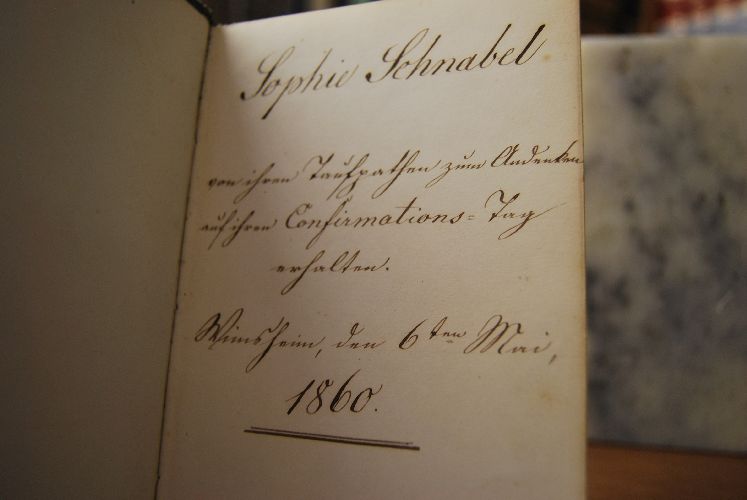 Sophie Schnabel
von ihren Taufpathen zum Andenken
auf ihren Confirmations=Tag
erhalten.
Wimsheim, den 6ten Mai,
1860.